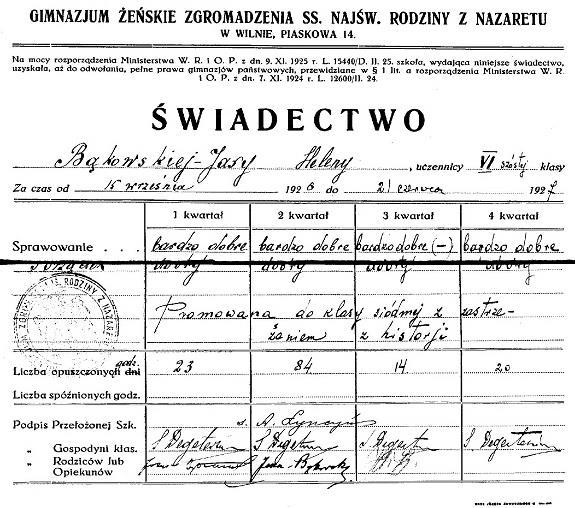 GIMNAZJUM ŻEŃSKIE ZGROMADZENIA SS. NAJŚW. RODZINY Z NAZARETU
W WILNIE, PIASKOWA 14.
Na mocy rozporządzenia Ministerstwa W. R. i O. P. z dn. 9. XI. 1925 r. L. 15440/D. II. 25. szkoła, wydająca niniejsze świadectwo,
uzyskała, aż do odwołania, pełne prawa gimnazjów państwowych, przewidziane w § 1 lit. a rozporządzenia Ministerstwa W. R.
i O. P. z dn. 7. XI. 1924 r. L. 12600/II. 24.
ŚWIADECTWO
Bąkowskiej-Jasy Heleny, uczennicy VI szóstej klasy
Za czas od 15 września 1926 do 21 czerwca 1927
1 kwartał 2 kwartał 3 kwartał 4 kwartał
Sprawowanie . . . bardzo dobre bardzo dobre bardzo dobre (–) bardzo dobre
dobry dobry dobry dobry
RODZINY Z NAZARETU
Promowana do klasy siódmej z zastrze-
żeniem z historji
Liczba opuszczonych dni godz. 23 84 14 20
Liczba spóźnionych godz.
Podpis Przełożonej Szk.
„ Gospodyni klas.
„ Rodziców lub
Opiekunów